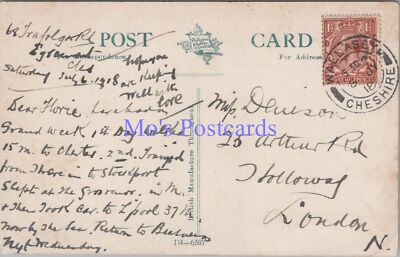 68 Trafalgar Rd
Egremont
Ches
Saturday July 6 1918
hope you
are keeping
well with
love
POST CARD
For Address
WALLASEY
CHESHIRE
Dear Florie
Grand Week 1st Day
15 m. to Chester, 2nd Trained
from There in to Stockport
Slept at the Grosvenor in M.
& Then Took Car to L'pool 37 M
now by the Sea Return to Business
Next Wednesday.
British Manufacture Throughout
D4-6397
Miss Denison
25 Arthur Rd
Holloway
London
N.
Mo's Postcards